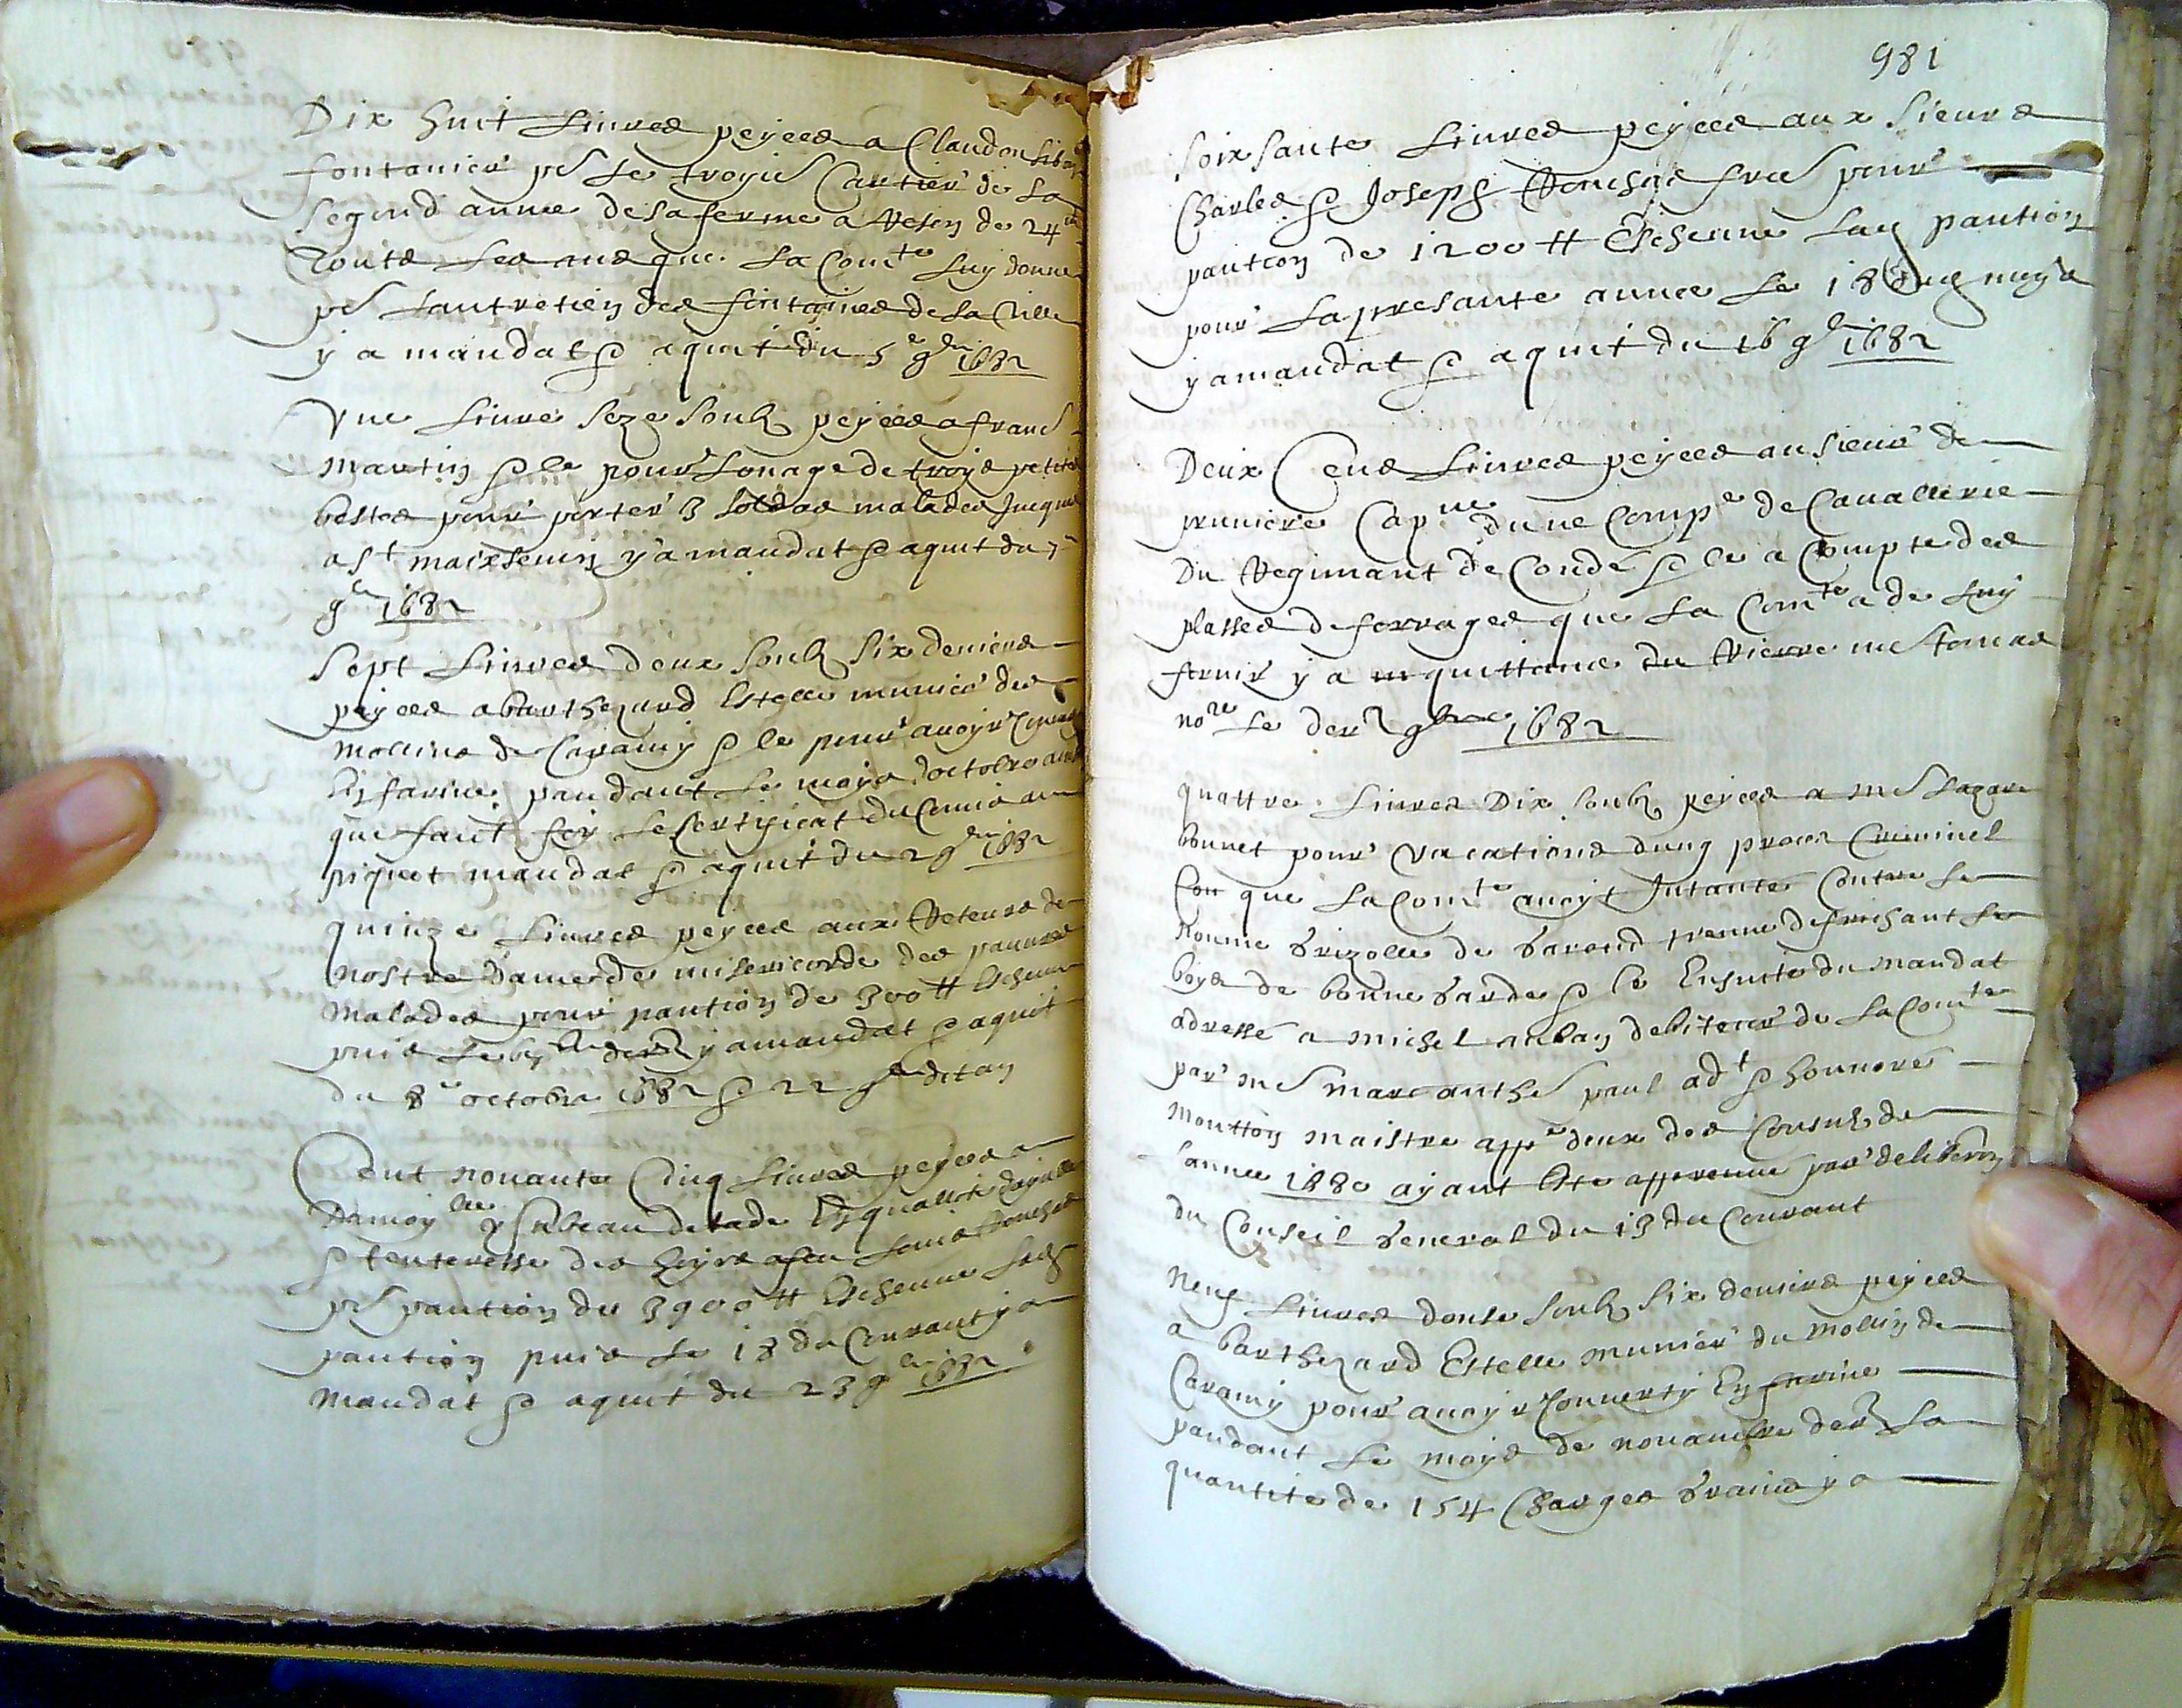 Dix huit Livres peyees a Claudon
fontanier pr Le troyie Cartier de La
Segond annee de sa ferme a Reson de 24
touts Les ans que La Comte Luy donne
pr Lantretien des fontaines de La Ville
y a mandat & aquit du 5e 9bre 1682
Vne Livre seze soulz peyees a franc
Martin & le pour Louage de troys petites
bestes pour porter 3 soldas malades Jucques
a St maixsemin y a mandat & aquit du 7
9bre 1682
Sept Livres deux soulz six deniers
peyees a Barthezard Estelle munier des
Mollins de Caramy & le pour avoyr
En farine pandant le moys doctobre
que fait foy Le sertificat du Comis au
piquet mandat & aquit du 2 9bre 1682
quinze Livres peyees aux Reteurs de
nostre Dame de misericorde des pauvres
Malades pour pantion de 300 # Escheue
puis Le 9bre der y a mandat & aquit
du 8e octobre 1682 & 22 9bre dit an
Cent nonante Cinq Livres peyees a
Damoylle ysabeau de En quallite
& tenteresse des hoyrs a feu Louis
pr pantion de 3900 # Escheue
pantion puis Le 18 du Courant y a
Mandat & aquit du 23 9bre 1682
981
Soixsante Livres peyees aux Sieurs
Charles & Joseph frer pour
pantion de 1200 # Escheue Lad pantion
pour La presante annee Le 18 du moys
y a mandat & aquit du 16 9bre 1682
Deux Cens Livres peyees au Sieur de
pruniere Capne dune Compe de Cavallerie
Du Regimant de Conde & le a Compte des
plasses de forrages que La Comte a de Luy
fornir y a quittance du Rierre me
nore Le der 9bre 1682
quattre Livres Dix soulz peyees a Me Lazare
bonnet pour Vacations dung proces Criminel
que La Comte avoyt Intante Contre Le
Nomme brizolle de treuve defrichant Le
boys de bonne garde & le Ensuite du mandat
adresse a Michel debiteur de La Comte
par Me Marc anthe paul adt & honnore
Moutton maistre appre deux des Consulz de
Lannee 1680 ayant Este apprenue par deliberon
du Conseil General du 13 du Courant
Neuf Livres douse soulz six deniers peyees
a barthezard Estelle munier du Mollin de
Caramy pour avoyr Converty En farine
pandant Le moys de novambre der La
quantite de 154 Charges Grains y a